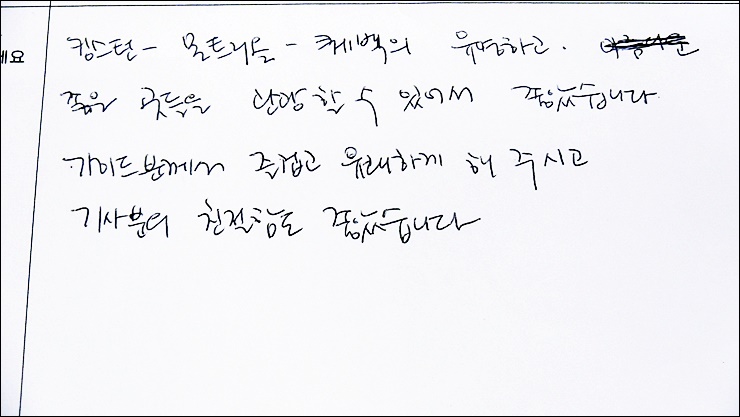 킹스턴 - 몬트리올 - 퀘벡의 유명하고.
좋은 곳들을 관광할 수 있어서 좋았습니다
가이드분께서 즐겁고 유쾌하게 해 주시고
기사분의 친절함도 좋았습니다
세요